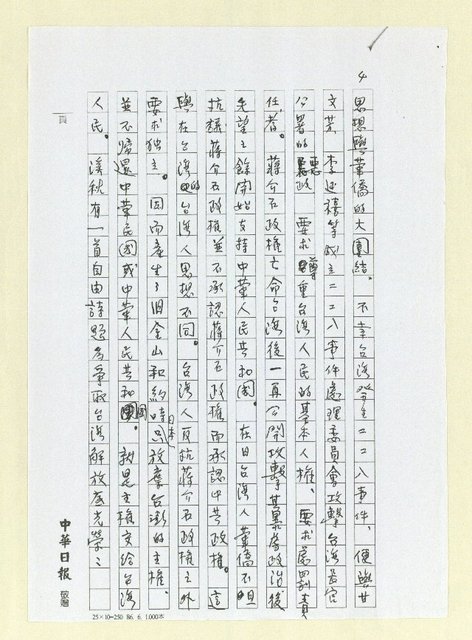 4
思想與華僑的大團結。不幸台灣發生二二八事件，便與甘
文芳、李延禧等成立二二八事件處理委員會攻擊台灣長官
公署的惡政，要求尊重台灣人民的基本人權、要求處罰責
任者。蔣介石政權亡命台灣後一再公開攻擊其暴虐政治後
失望之餘開始支持中華人民共和國。在日台灣人華僑不但
抗議蔣介石政權並不承認蔣介石政權而承認中共政權。這
與在台灣的台灣人思想不同。台灣人反抗蔣介石政權之外
要求独立。因而產生了旧金山和約時日本只放棄台灣的主權、
並不歸還中華民國或中華人民共和國。就是主權交給台灣
人民。溪秋有一首自由詩題為爭取台灣解放為光榮：
頁
中華日報 敬贈
25×10=250 86. 6. 1,000本